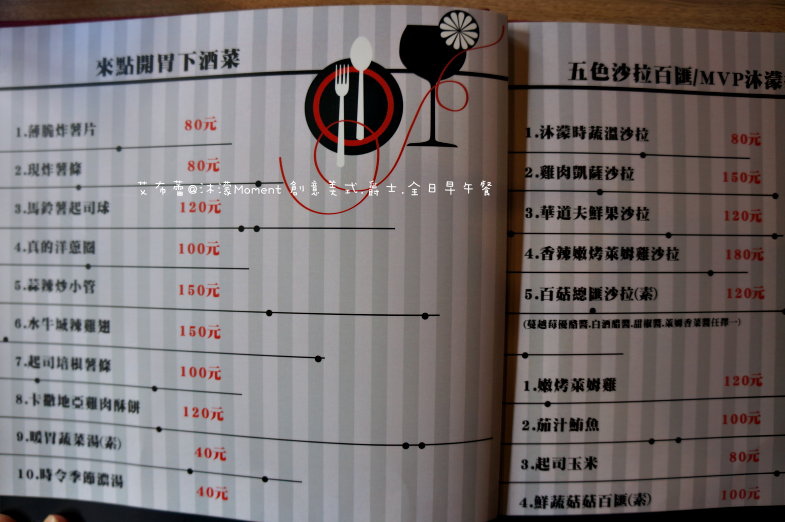 來點開胃下酒菜
1.薄脆炸薯片 80元
2.現炸薯條 80元
3.馬鈴薯起司球 120元
4.真的洋蔥圈 100元
5.蒜辣炒小管 150元
6.水牛城辣雞翅 150元
7.起司培根薯條 100元
8.卡撒地亞雞肉酥餅 120元
9.暖胃蔬菜湯(素) 40元
10.時令季節濃湯 40元
艾布蕾@沐濛Moment 創意美式.爵士.全日早午餐
五色沙拉百匯/MVP沐濛
1.沐濛時蔬溫沙拉 80元
2.雞肉凱薩沙拉 150元
3.華道夫鮮果沙拉 120元
4.香辣嫩烤萊姆雞沙拉 180元
5.百菇總匯沙拉(素) 120元
(蔓越莓優酪醬.白酒醋醬.甜椒醬.萊姆香菜醬任擇一)
1.嫩烤萊姆雞 120元
2.茄汁鮪魚 100元
3.起司玉米 80元
4.鮮蔬菇菇百匯(素) 100元